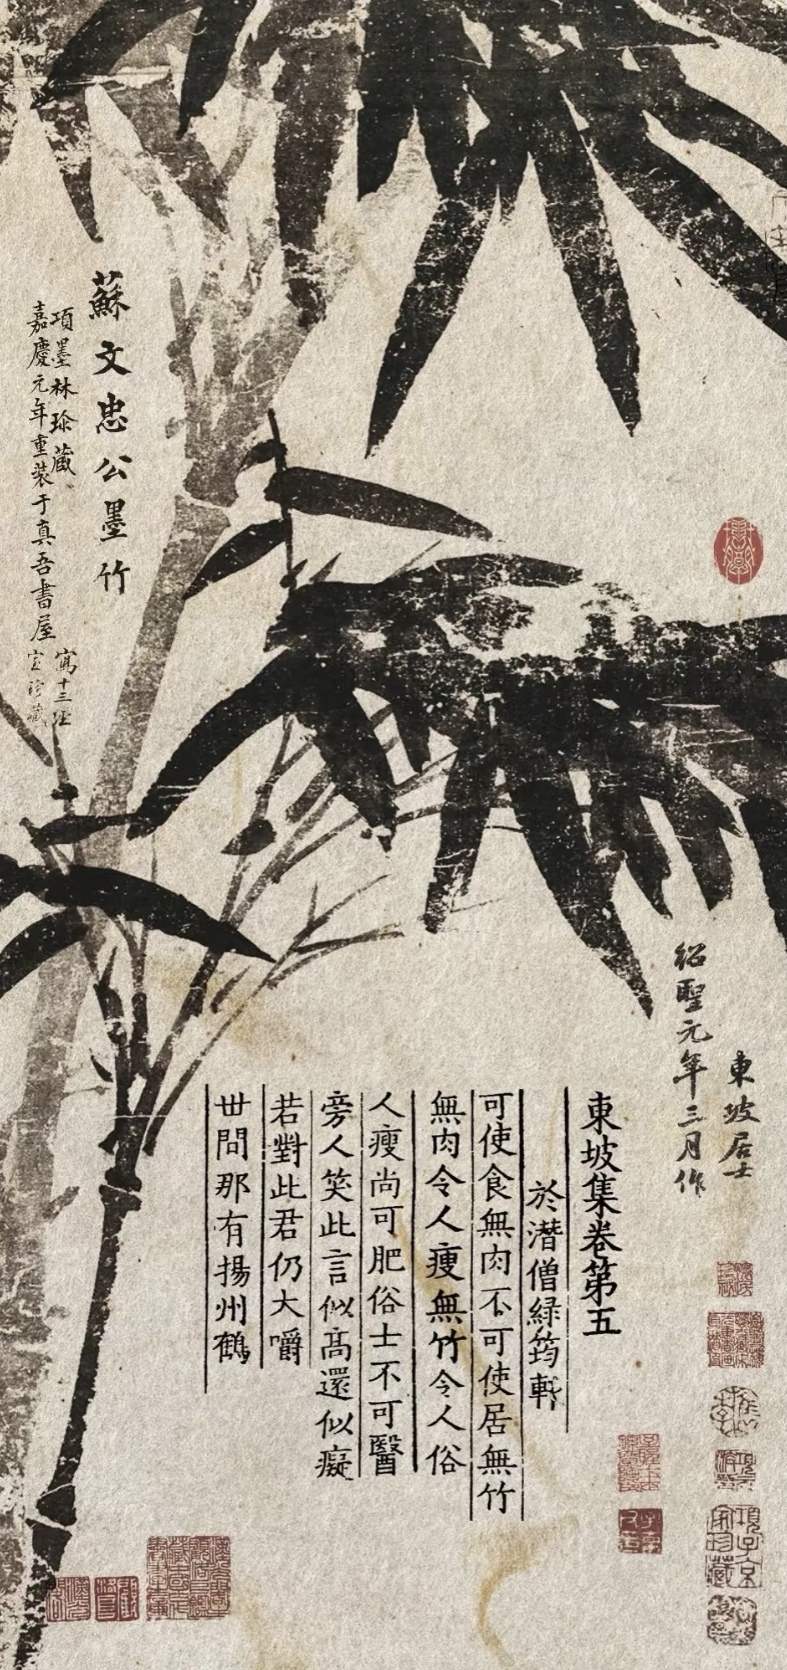 東坡居士
紹聖元年三月作
東坡集卷第五
於潛僧緑筠軒
可使食無肉不可使居無竹
無肉令人瘦無竹令人俗
人瘦尚可肥俗士不可醫
旁人笑此言似髙還似癡
若對此君仍大嚼
丗間那有揚州鶴
蘇文忠公墨竹
項墨林珍藏
嘉慶元年重裝于真吾書屋
項子京家珍藏